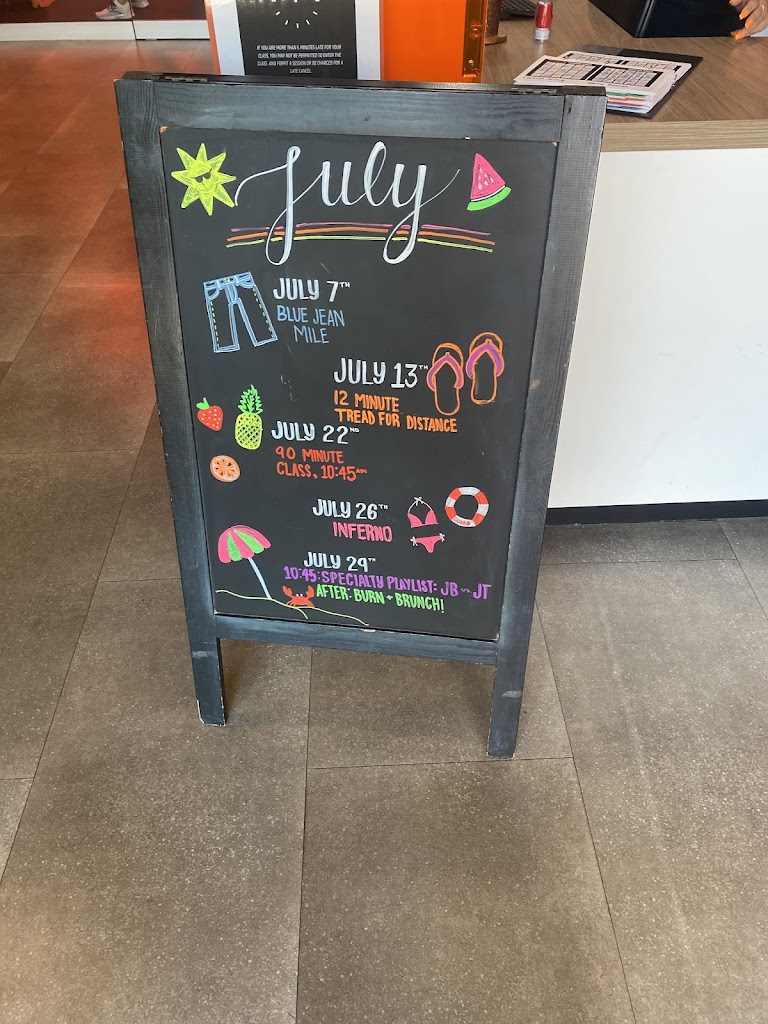 IF YOU ARE MORE THAN 5 MINUTES LATE FOR YOUR
CLASS, YOU MAY NOT BE PERMITTED TO ENTER THE
CLASS AND FORFIT A SESSION OR BE CHARGED FOR A
LATE CANCEL.
July
JULY 7TH
BLUE JEAN
MILE
JULY 13TH
12 MINUTE
TREAD FOR DISTANCE
JULY 22ND
90 MINUTE
CLASS, 10:45AM
JULY 26TH
INFERNO
JULY 29TH
10:45: SPECIALTY PLAYLIST: JB vs JT
AFTER: BURN + BRUNCH!